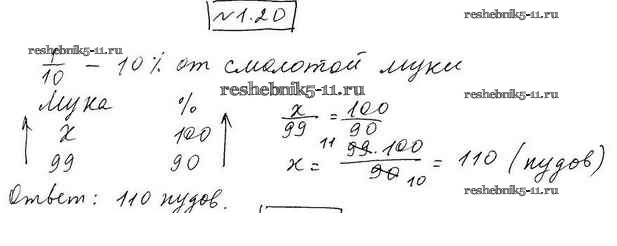 №1.20
reshebnik5-11.ru
reshebnik5-11.ru
1/10 – 10% от смолотой муки
reshebnik5-11.ru
reshebnik5-11.ru
Мука %
x 100
99 90
x/99 = 100/90
x = 99·100/90 = 110 (пудов)
11
10
reshebnik5-11.ru
Ответ: 110 пудов.